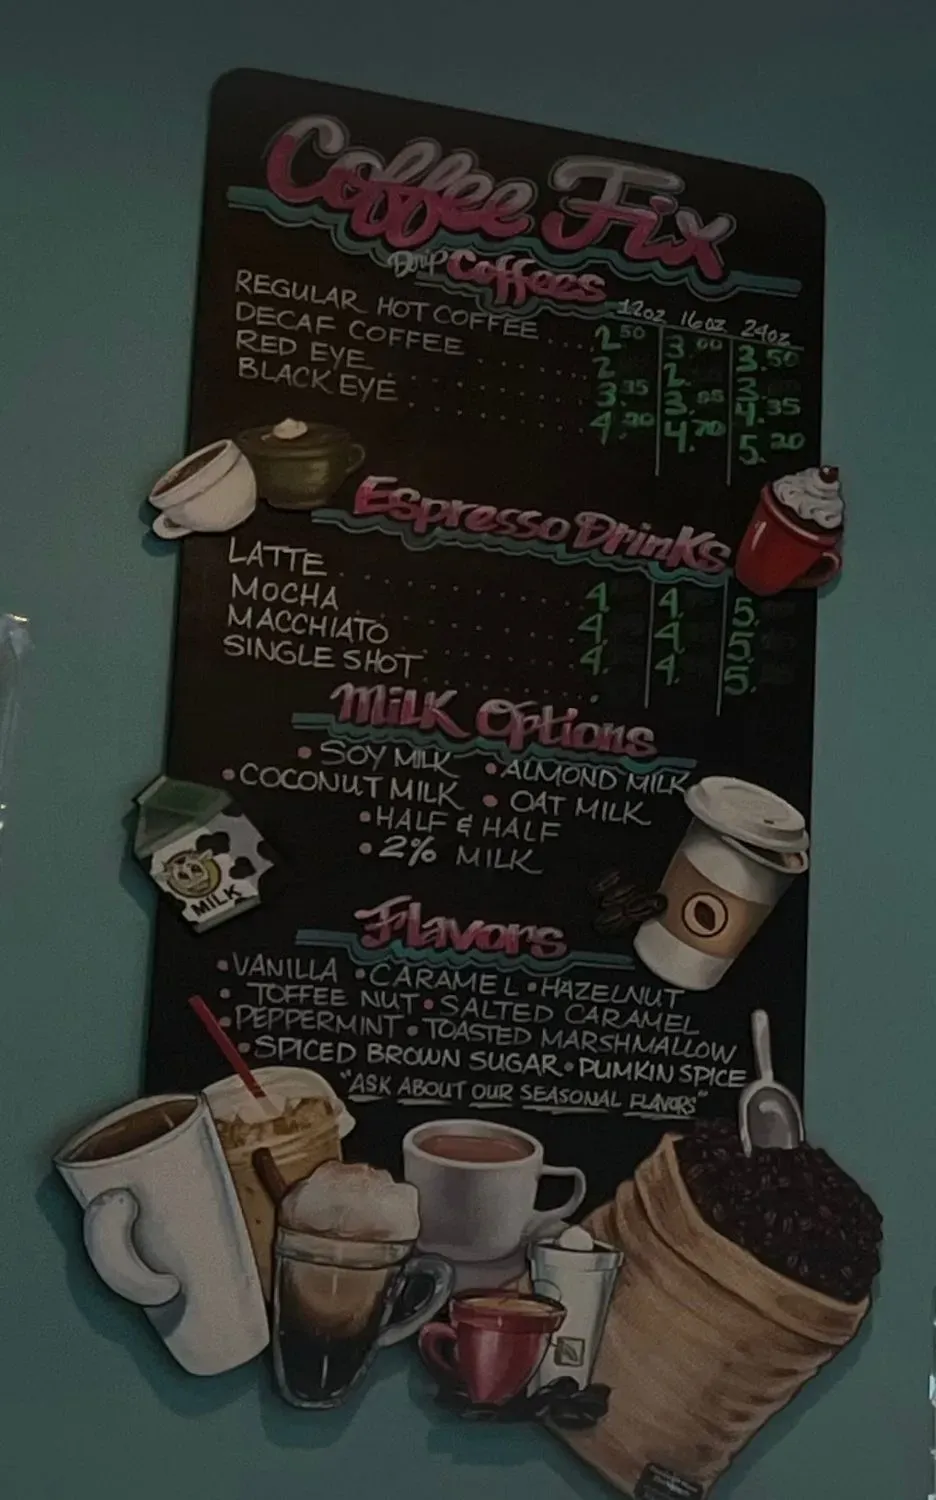 Coffee Fix
Drip Coffees
12oz 16oz 24oz
REGULAR HOT COFFEE .... 2.50 3.00 3.50
DECAF COFFEE ........ 2. 2. 3.
RED EYE ........ 3.35 3.85 4.35
BLACK EYE ........ 4.20 4.70 5.20
Espresso Drinks
LATTE ........ 4. 4. 5.
MOCHA ........ 4. 4. 5.
MACCHIATO ........ 4. 4. 5.
SINGLE SHOT ........
Milk Options
• SOY MILK • ALMOND MILK
• COCONUT MILK • OAT MILK
• HALF & HALF
• 2% MILK
Flavors
• VANILLA • CARAMEL • HAZELNUT
• TOFFEE NUT • SALTED CARAMEL
• PEPPERMINT • TOASTED MARSHMALLOW
• SPICED BROWN SUGAR • PUMKIN SPICE
"ASK ABOUT OUR SEASONAL FLAVORS"
MILK